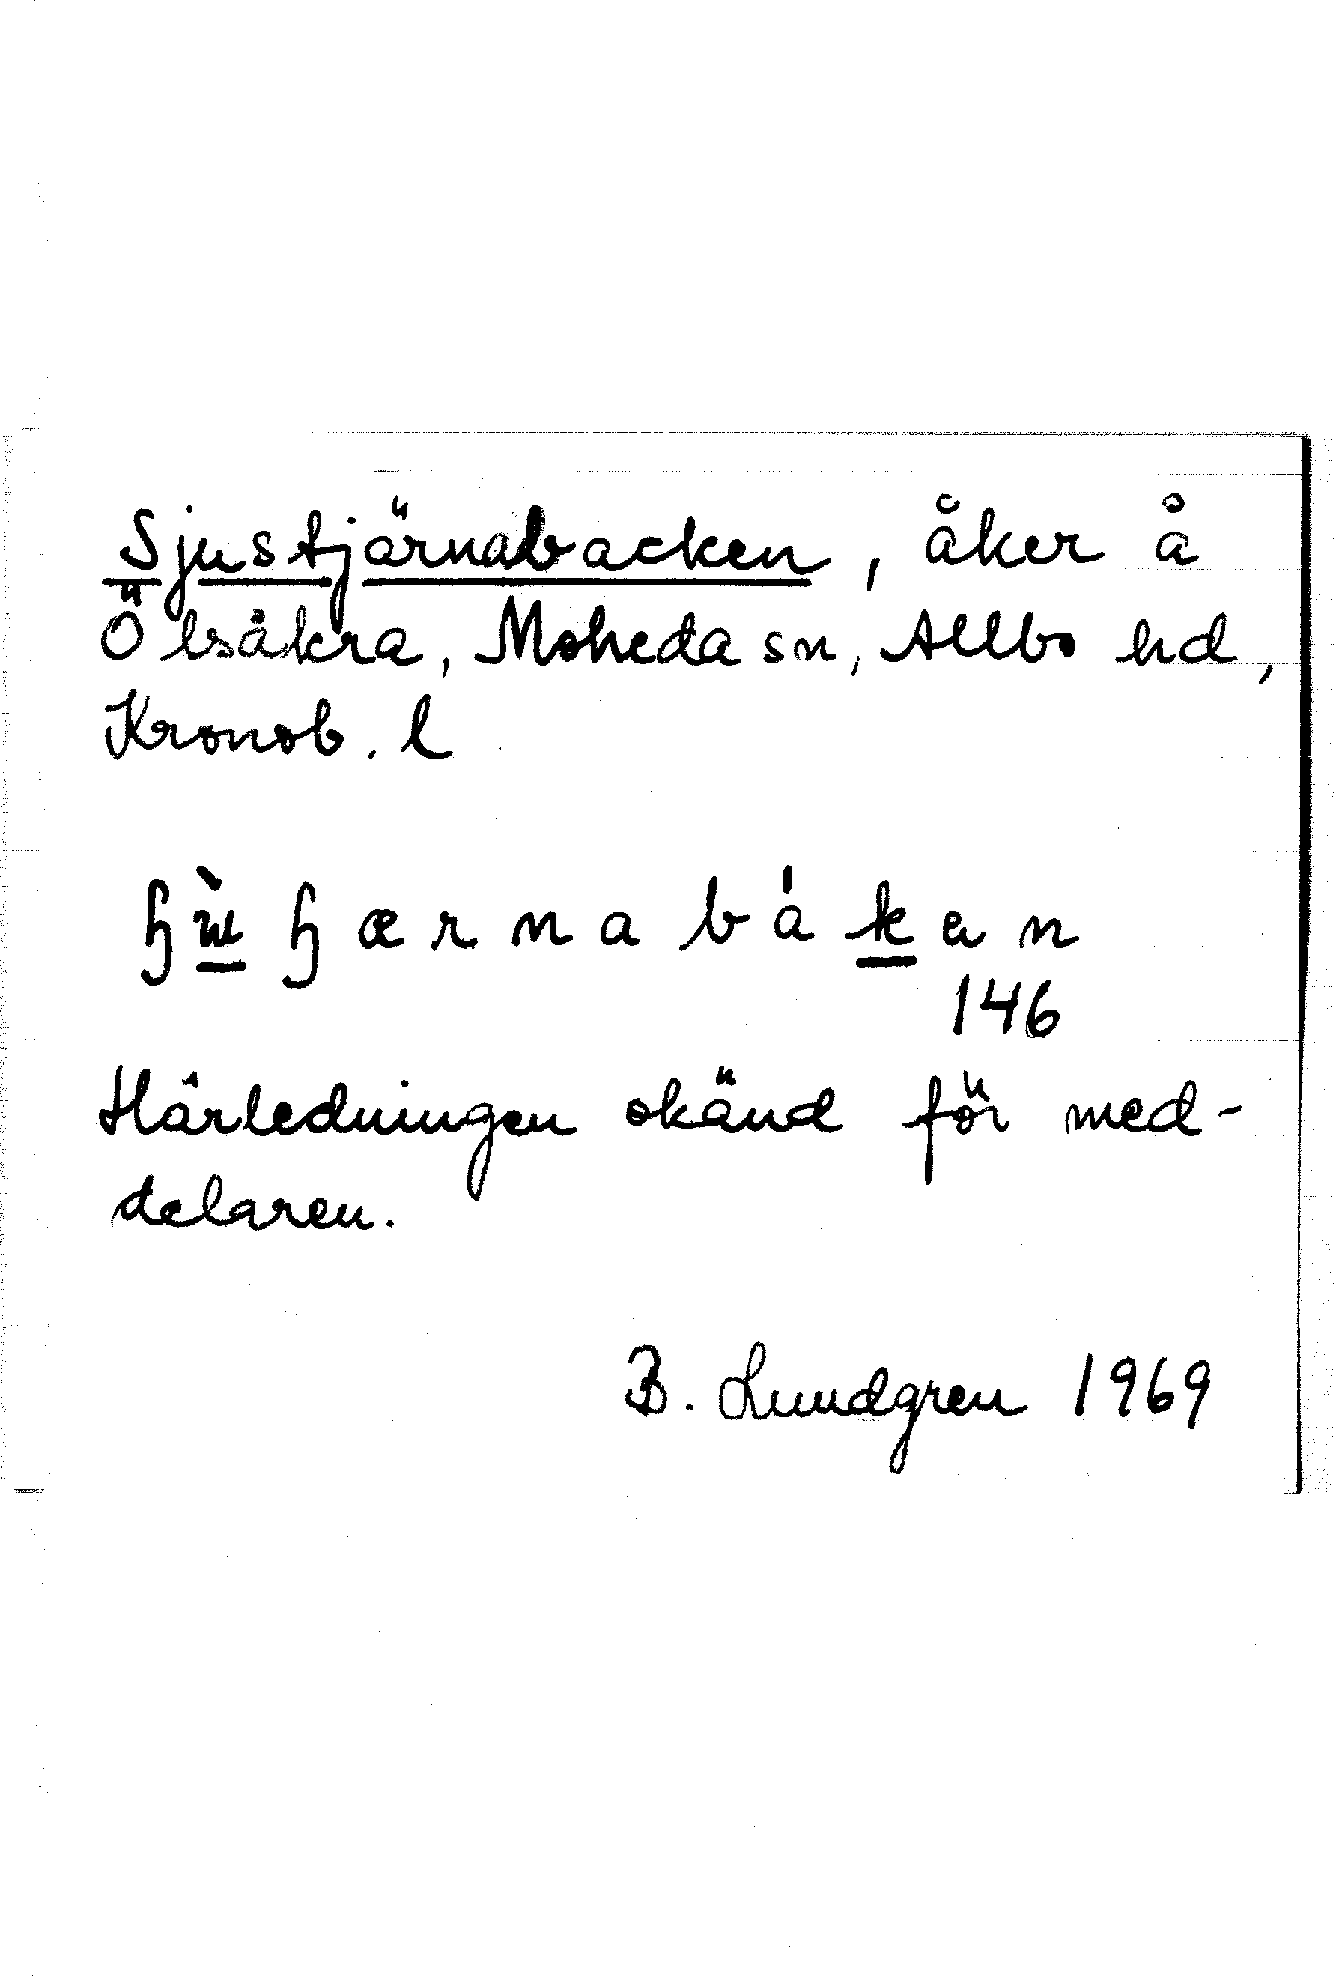 Sjustjärnabacken, åker å
Ölsåkra, Moheda sn, Allbo hd,
Kronob. l
ꜧɯ̀ꜧærnabákan
146
Härledningen okänd för med-
delaren.
B. Lundgren 1969